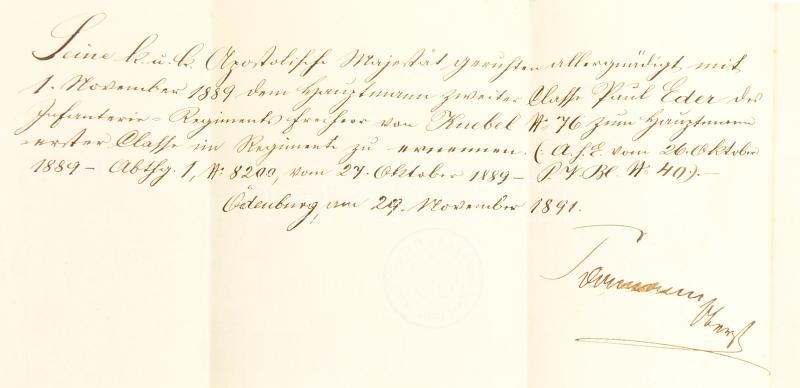 Seine k. u. k. Apostolische Majestät geruhten allergnädigst mit
1. November 1889 dem Hauptmann zweiter Classe Paul Eder des
Infanterie-Regiments Freiherr von Knebel № 76 zum Hauptmann
erster Classe im Regimente zu ernennen. (A. h. E. vom 26. Oktober
1889 – Abthg. 1, № 8200, vom 27. Oktober 1889 – P. V. Bl. № 40). –
Ödenburg, am 29. November 1891.
Oberst